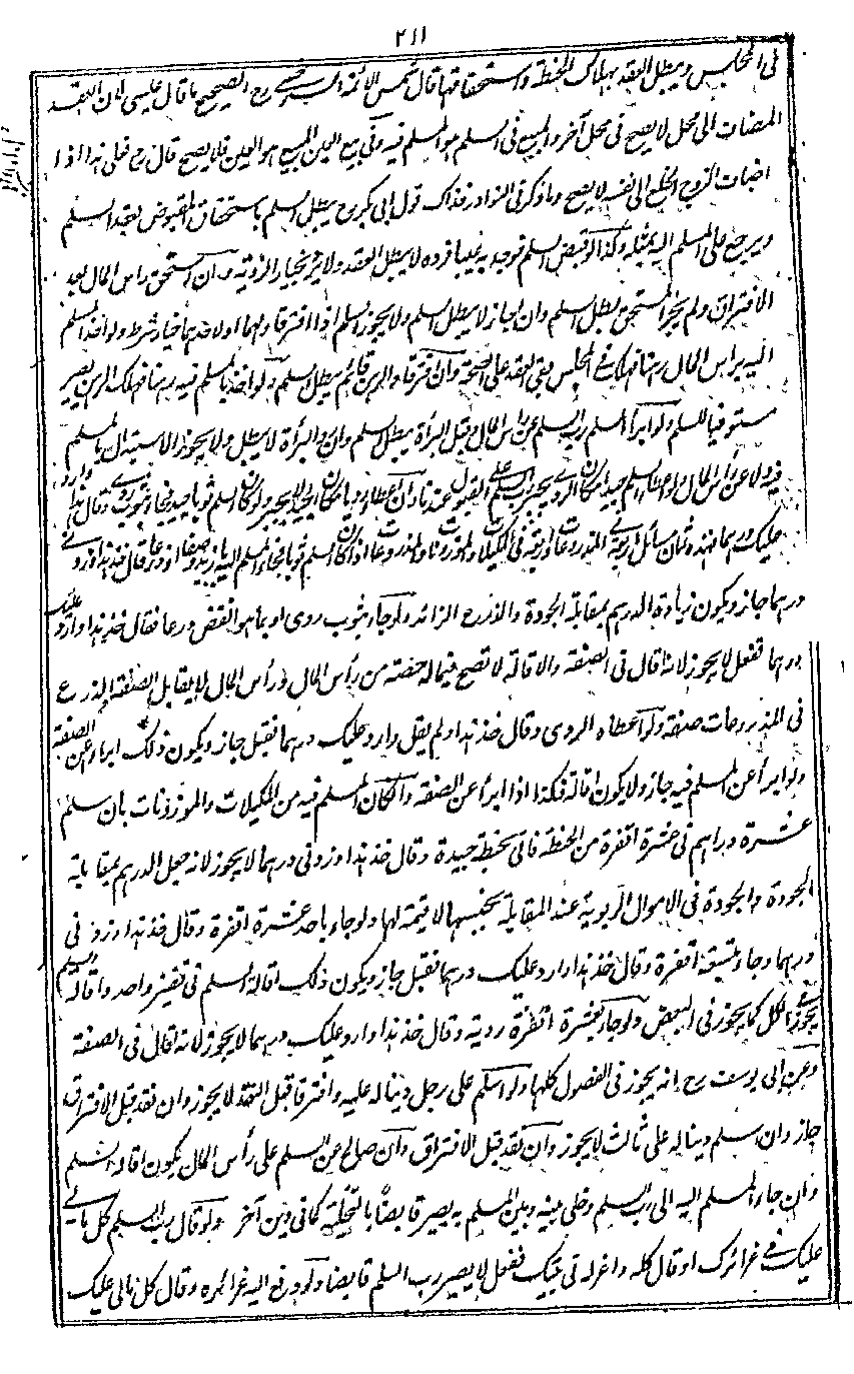 ٢١١
فى المجلس ويبطل العقد بهلاك الحنطة واستحقاقها قال شمس الائمة السرخسى رح الصحيح ما قال عيسى لان العقد
المضاف الى محل لا يصح فى محل آخر والمبيع فى السلم هو المسلم فيه وفى بيع العين المبيع هو العين فلا يصح قال رح فعلى هذا اذا
اضاف الزوج الخلع الى نفسه لا يصح وما ذكر فى النوادر فذاك قول ابى بكر رح يبطل السلم باستحقاق المقبوض بعقد السلم
ويرجع على المسلم اليه بمثله وكذا لو قبض السلم فوجد به عيبا فرده لا يبطل العقد ولا يثبت خيار الرؤية وان استحق راس المال بعد
الافتراق ولم يجز المستحق يبطل السلم وان اجاز لا يبطل السلم ولا يجوز السلم اذا افترقا ولهما او لاحدهما خيار شرط ولو اخذ المسلم
اليه براس المال رهنا فهلك فى المجلس بقى العقد على الصحة وان افترقا والرهن قائم يبطل السلم ولو اخذ بالمسلم فيه رهنا فهلك الرهن يصير
مستوفيا للسلم ولو ابرأ المسلم رب السلم عن راس المال وقبل البرأة يبطل السلم وان رد البرأة لا يبطل ولا يجوز الاستبدال بالمسلم
فيه ولا عن رأس المال ولو اعطا السلم جيدا مكان الردى يجبر رب السلم على القبول عندنا وان اعطاه رديا مكان الجيد لا يجبر ولو كان السلم ثوبا جيدا فجاء بثوب ردى وقال خذ هذا وارد
عليك درهما فهذه ثمان مسائل اربعة فى المذروعات واربعة فى المكيلات والموزونات والمذروعات اذا كان السلم ثوبا فجاء المسلم اليه بازيد وصفا او ذرعا وقال خذ هذا وزدنى
درهما جاز ويكون زيادة الدرهم بمقابلة الجودة والذرع الزائد ولو جاء بثوب ردى او بما هو انقص درعا فقال خذ هذا وارد عليك
درهما ففعل لا يجوز لانه اقال فى الصفة والاقالة لا تصح فيما له حصة من رأس المال ورأس المال لا يقابل الصفة الذرع
فى المذروعات صفة ولو اعطاه الردى وقال خذ هذا ولم يقل وارد عليك درهما فقبل جاز ويكون ذلك ابراء عن الصفة
ولو ابرأ عن المسلم فيه جاز ولا يكون اقالة فكذا اذا ابرأ عن الصفة وان كان المسلم فيه من المكيلات والموزونات بان سلم
عشرة دراهم فى عشرة اقفزة من الحنطة فاتى بحنطة جيدة وقال خذ هذا وزدنى درهما لا يجوز لانه جعل الدرهم بمقابلة
الجودة والجودة فى الاموال الربوية عند المقابلة بجنسها لا قيمة لها ولو جاء باحد عشرة اقفزة وقال خذ هذا وزدنى
درهما وجاء بتسعة اقفزة وقال خذ هذا وارد عليك درهما فقبل جاز ويكون ذلك اقالة السلم فى قفيز واحد واقالة السلم
يجوز فى الكل كما يجوز فى البعض ولو جاء بعشرة اقفزة ردية وقال خذ هذا وارد عليك درهما لا يجوز لانه اقال فى الصفة
وعن ابى يوسف رح انه يجوز فى الفصول كلها ولو اسلم على رجل دينا له عليه وافترقا قبل النقد لا يجوز وان نقد قبل الافتراق
جاز وان سلم دينا له على ثالث لا يجوز وان نقد قبل الافتراق وان صالح عن السلم على رأس المال يكون اقالة السلم
وان جاء المسلم اليه الى رب السلم وخلى بينه وبين المسلم به يصير قابضا بالتخلية كما فى دين آخر ولو قال رب السلم كل مالى
عليك فى غرائرك او قال كله واعزله فى بيتك ففعل لا يصير رب السلم قابضا ولو دفع اليه غرائره وقال كل مالى عليك